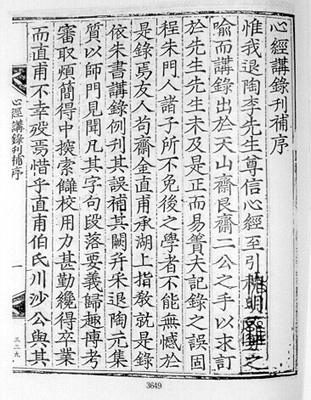 心經講錄刊補序
惟我退陶李先生尊信心經至引明嚴父之
喻而講錄出於天山齋艮齋二公之手以求訂
於先生先生未及是正而易簀夫記錄之誤固
程朱門人諸子所不免後之學者不能無憾於
是錄焉友人苟齋金直甫承湖上指敎就是錄
依朱書講錄例刊其誤補其闕幷采退陶元集
質以師門見聞凡其字句段落要義歸趣博考
審取煩簡得中探索讎校用力甚勤纔得卒業
而直甫不幸歿焉惜乎直甫伯氏川沙公與其
心經講錄刊補序 一
三二九
3649